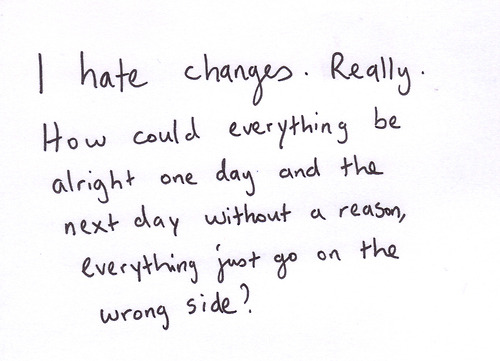 I hate changes. Really.
How could everything be
alright one day and the
next day without a reason,
everything just go on the
wrong side?